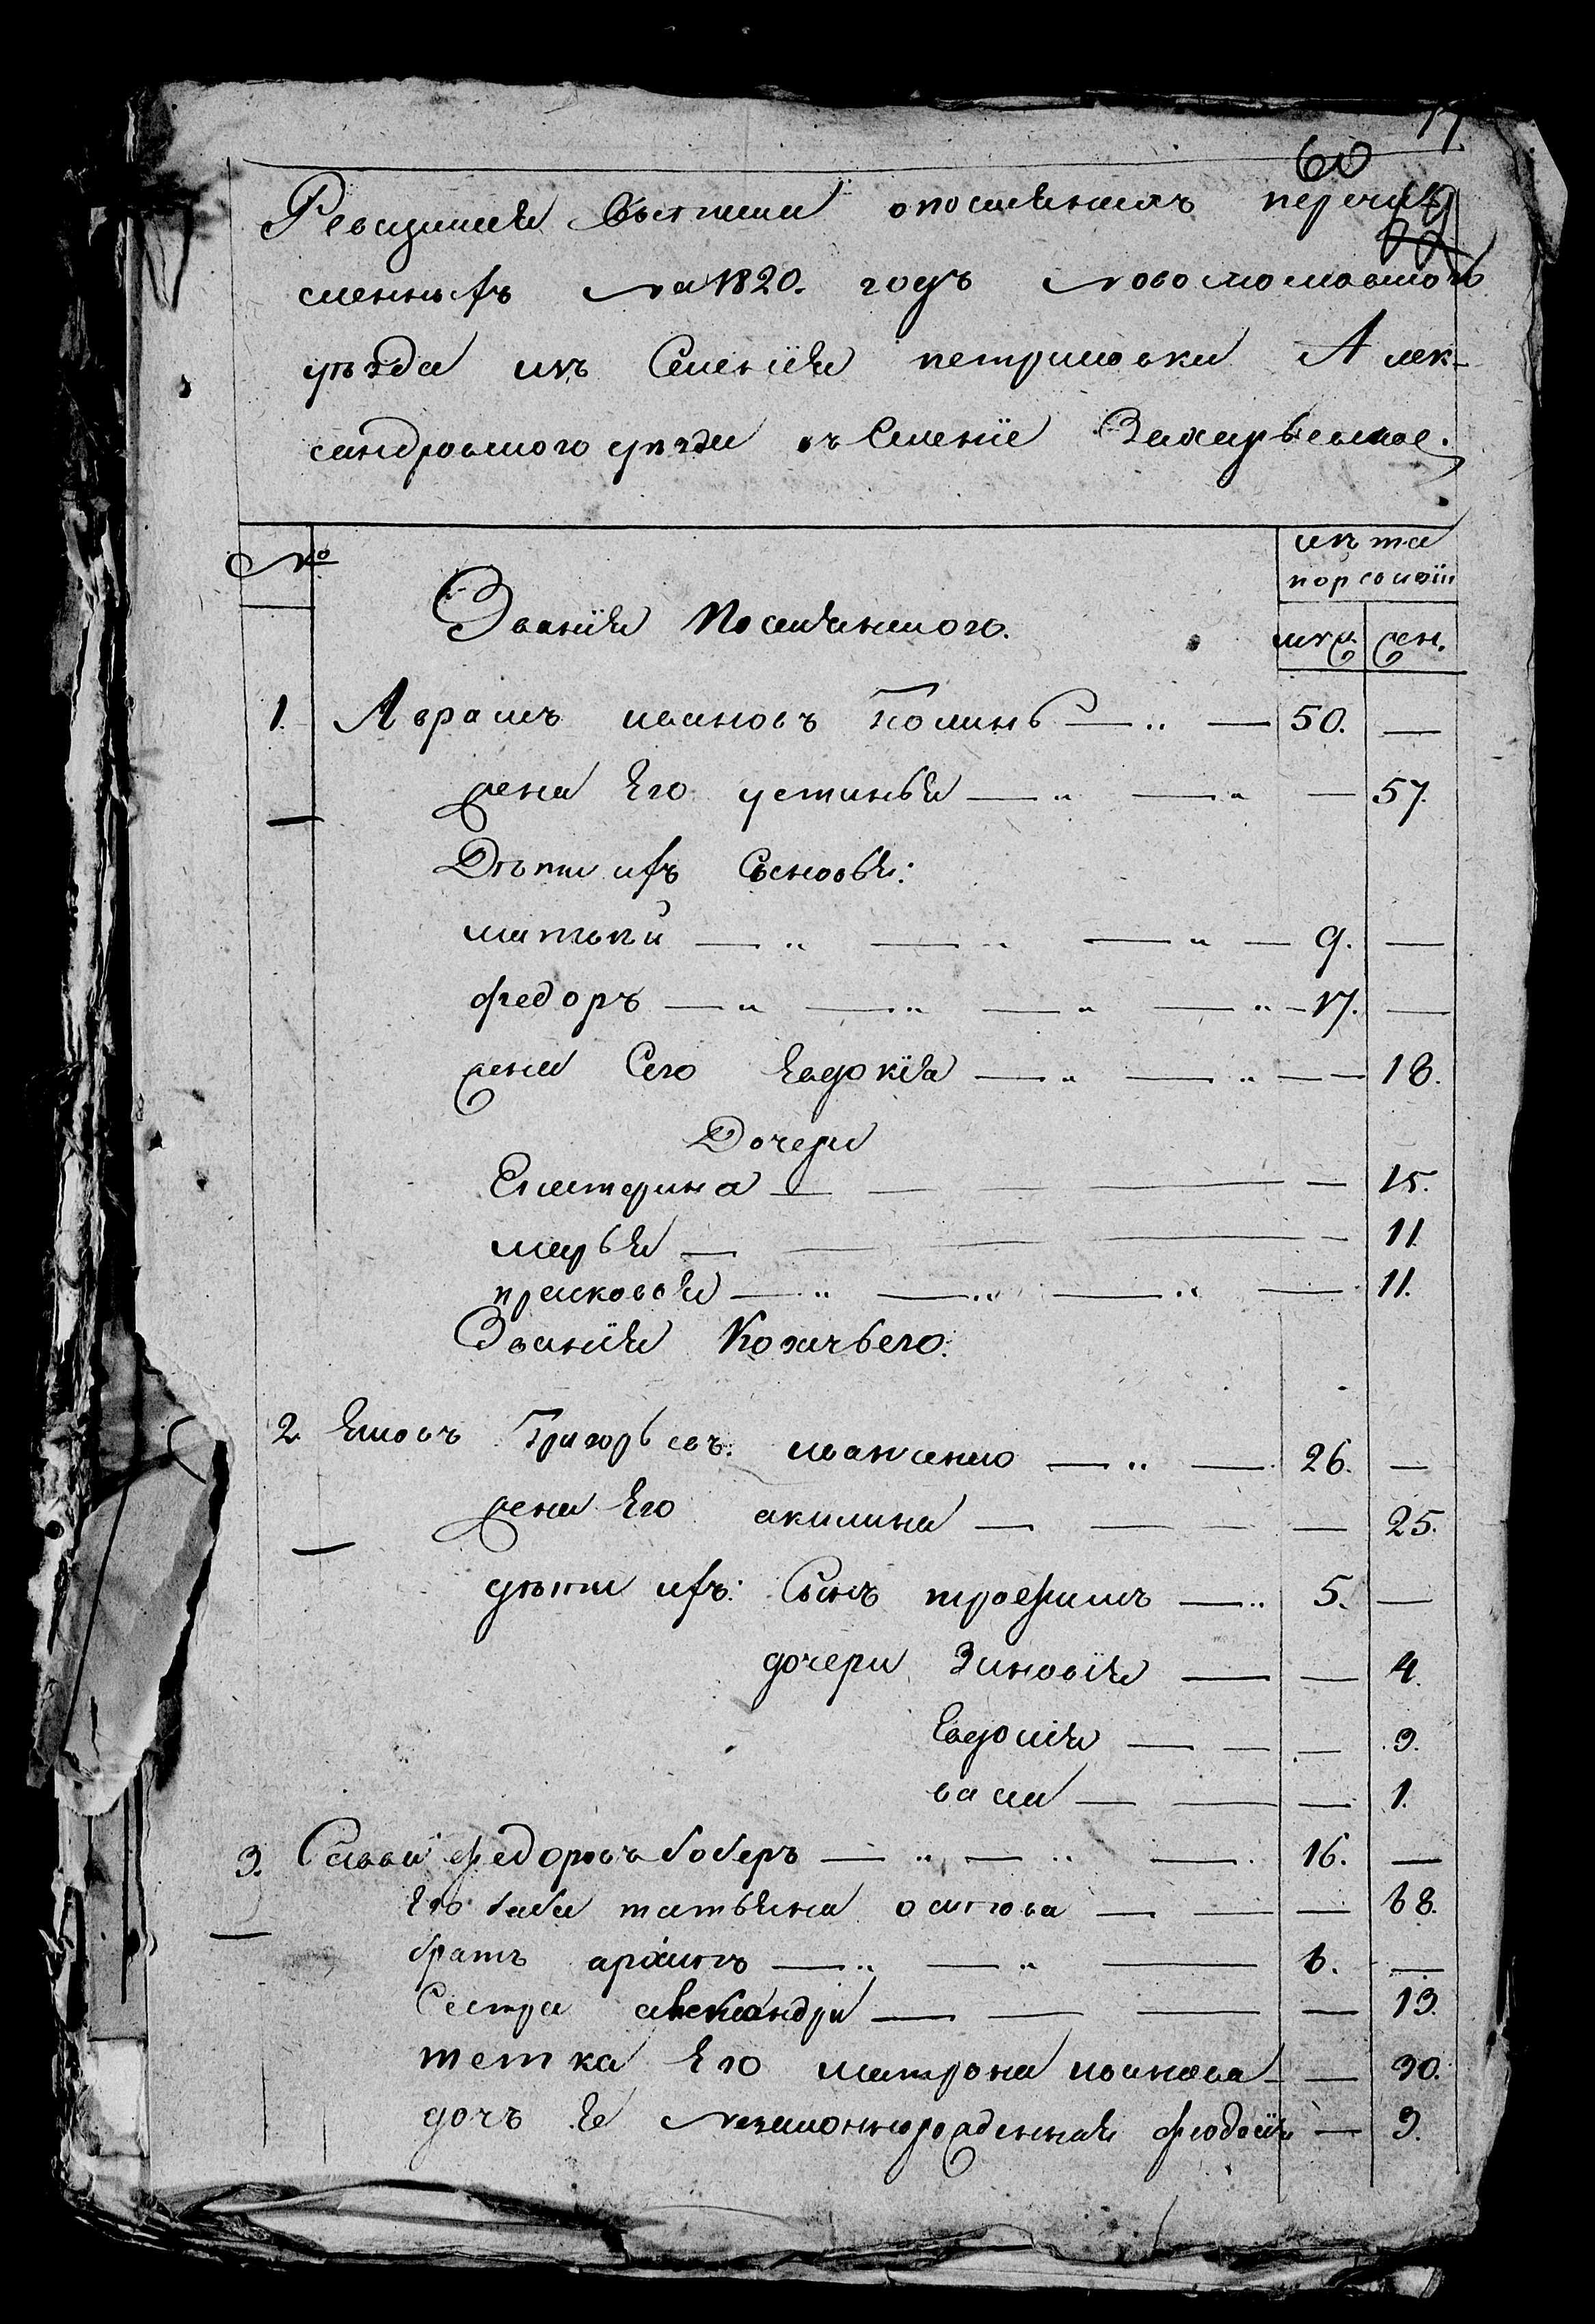 17
60
Ревизские Сказки о поселянахъ перечис
сленныхъ на 1820. годъ Новомосковского
уѣзда изъ Селенія петриковки Алек-
сандровского уѣзда въ Селеніе Захарьевское.
№
лѣта
Званія Поселянского.
муж. жен.
1. Аврамъ ивановъ — „ — 50. —
жена Его устинья — „ — „ — 57.
Дѣти ихъ Сыновья:
матвѣй — „ — „ — „ — 9. —
федоръ — „ — „ — „ — „ — 17. —
жена Сего Евдокія — „ — „ — — 18.
Дочери
Екатерина — — — — 15.
марья — — — — 11.
прасковья — „ — „ — „ — 11.
Званія Козачьего:
2. Яковъ Григорьевъ: — „ — 26. —
жена Его акилина — — — — 25.
дѣти ихъ: Сынъ трофимъ — „ 5. —
дочери Зиновія — — 4.
Евдокія — — — 3.
васа — — — 1.
3. Савва федоровъ боберъ — „ — „ — 16. —
Его баба татьяна осипова — — — 68.
братъ архипъ — „ — „ — 6. —
Сестра александра — — — — 13.
тетка Его матрона иванова — — 30.
дочь Ея незаконнорожденная феодосія — 3.